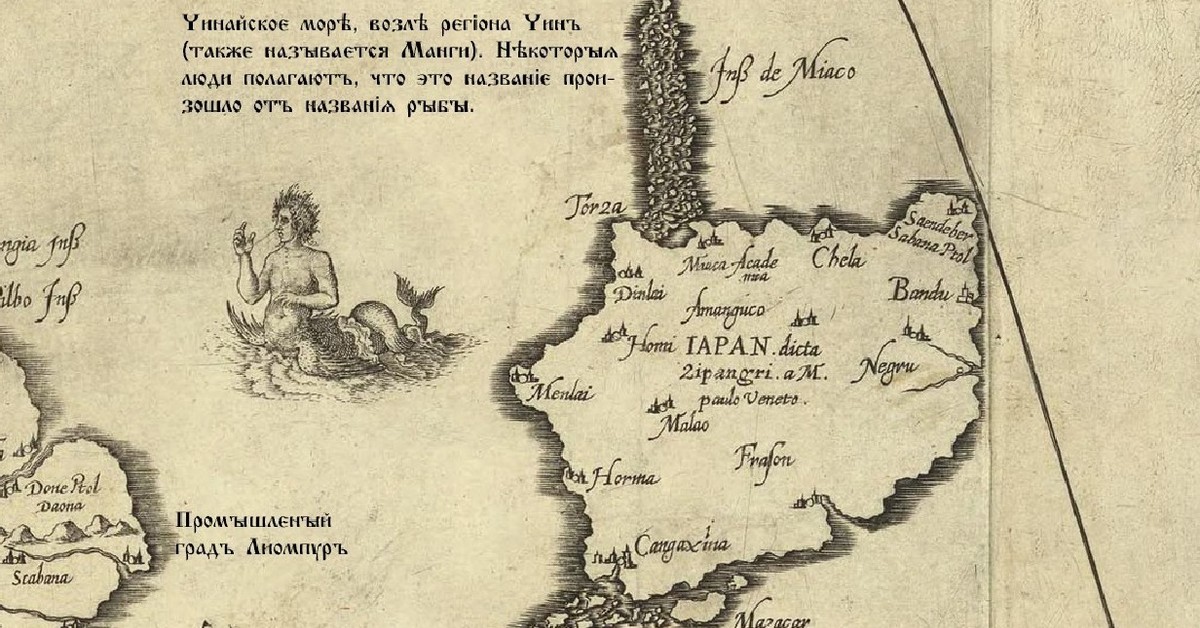 Чинайское морѣ, возлѣ регiона Чинъ
(также называется Манги). Нѣкоторыя
люди полагаютъ, что это названiе прои-
зошло отъ названiя рыбы.
Inß de Miaco
Torza
Saendeber
Sabana Ptol
Miaca Acade
mia
Chela
Dinlai
Bandu
Amanguco
Homi
IAPAN. dicta
Zipangri. a M.
paulo Veneto.
Negru
Menlai
Malao
Frason
Horma
Cangaxina
Mazacar
ngia Inß
ilbo Inß
Done Ptol
Daona
Scabana
Промышленый
градъ Лиомпуръ